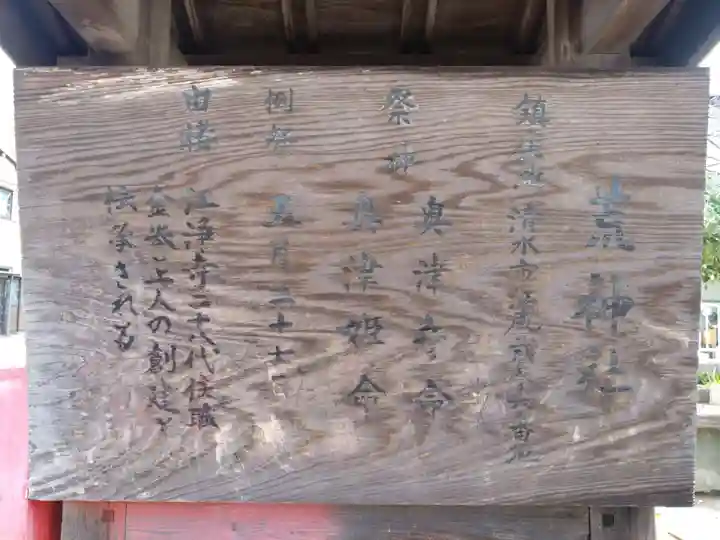 荒神社
鎮座地 清水市
祭神 奥津彦命
奥津姫命
例祭 五月二十七日
由緒 江浄寺二十八代住職
上人の創建と
伝承される